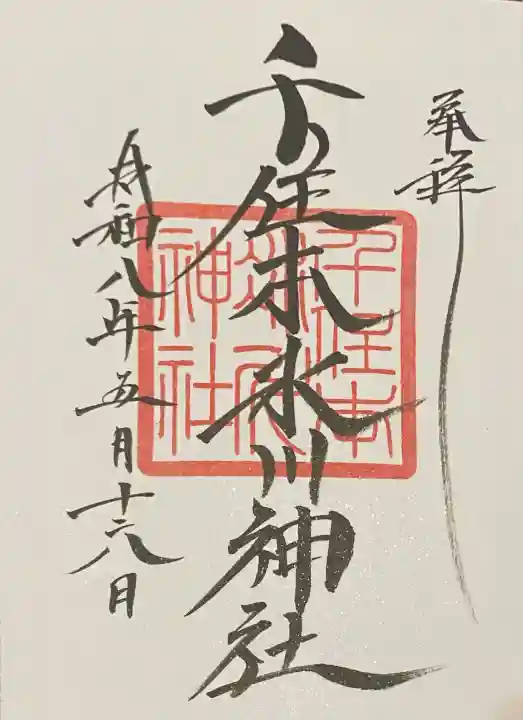 奉拝
千住本氷川神社
千住本
氷川
神社
令和八年五月十六日